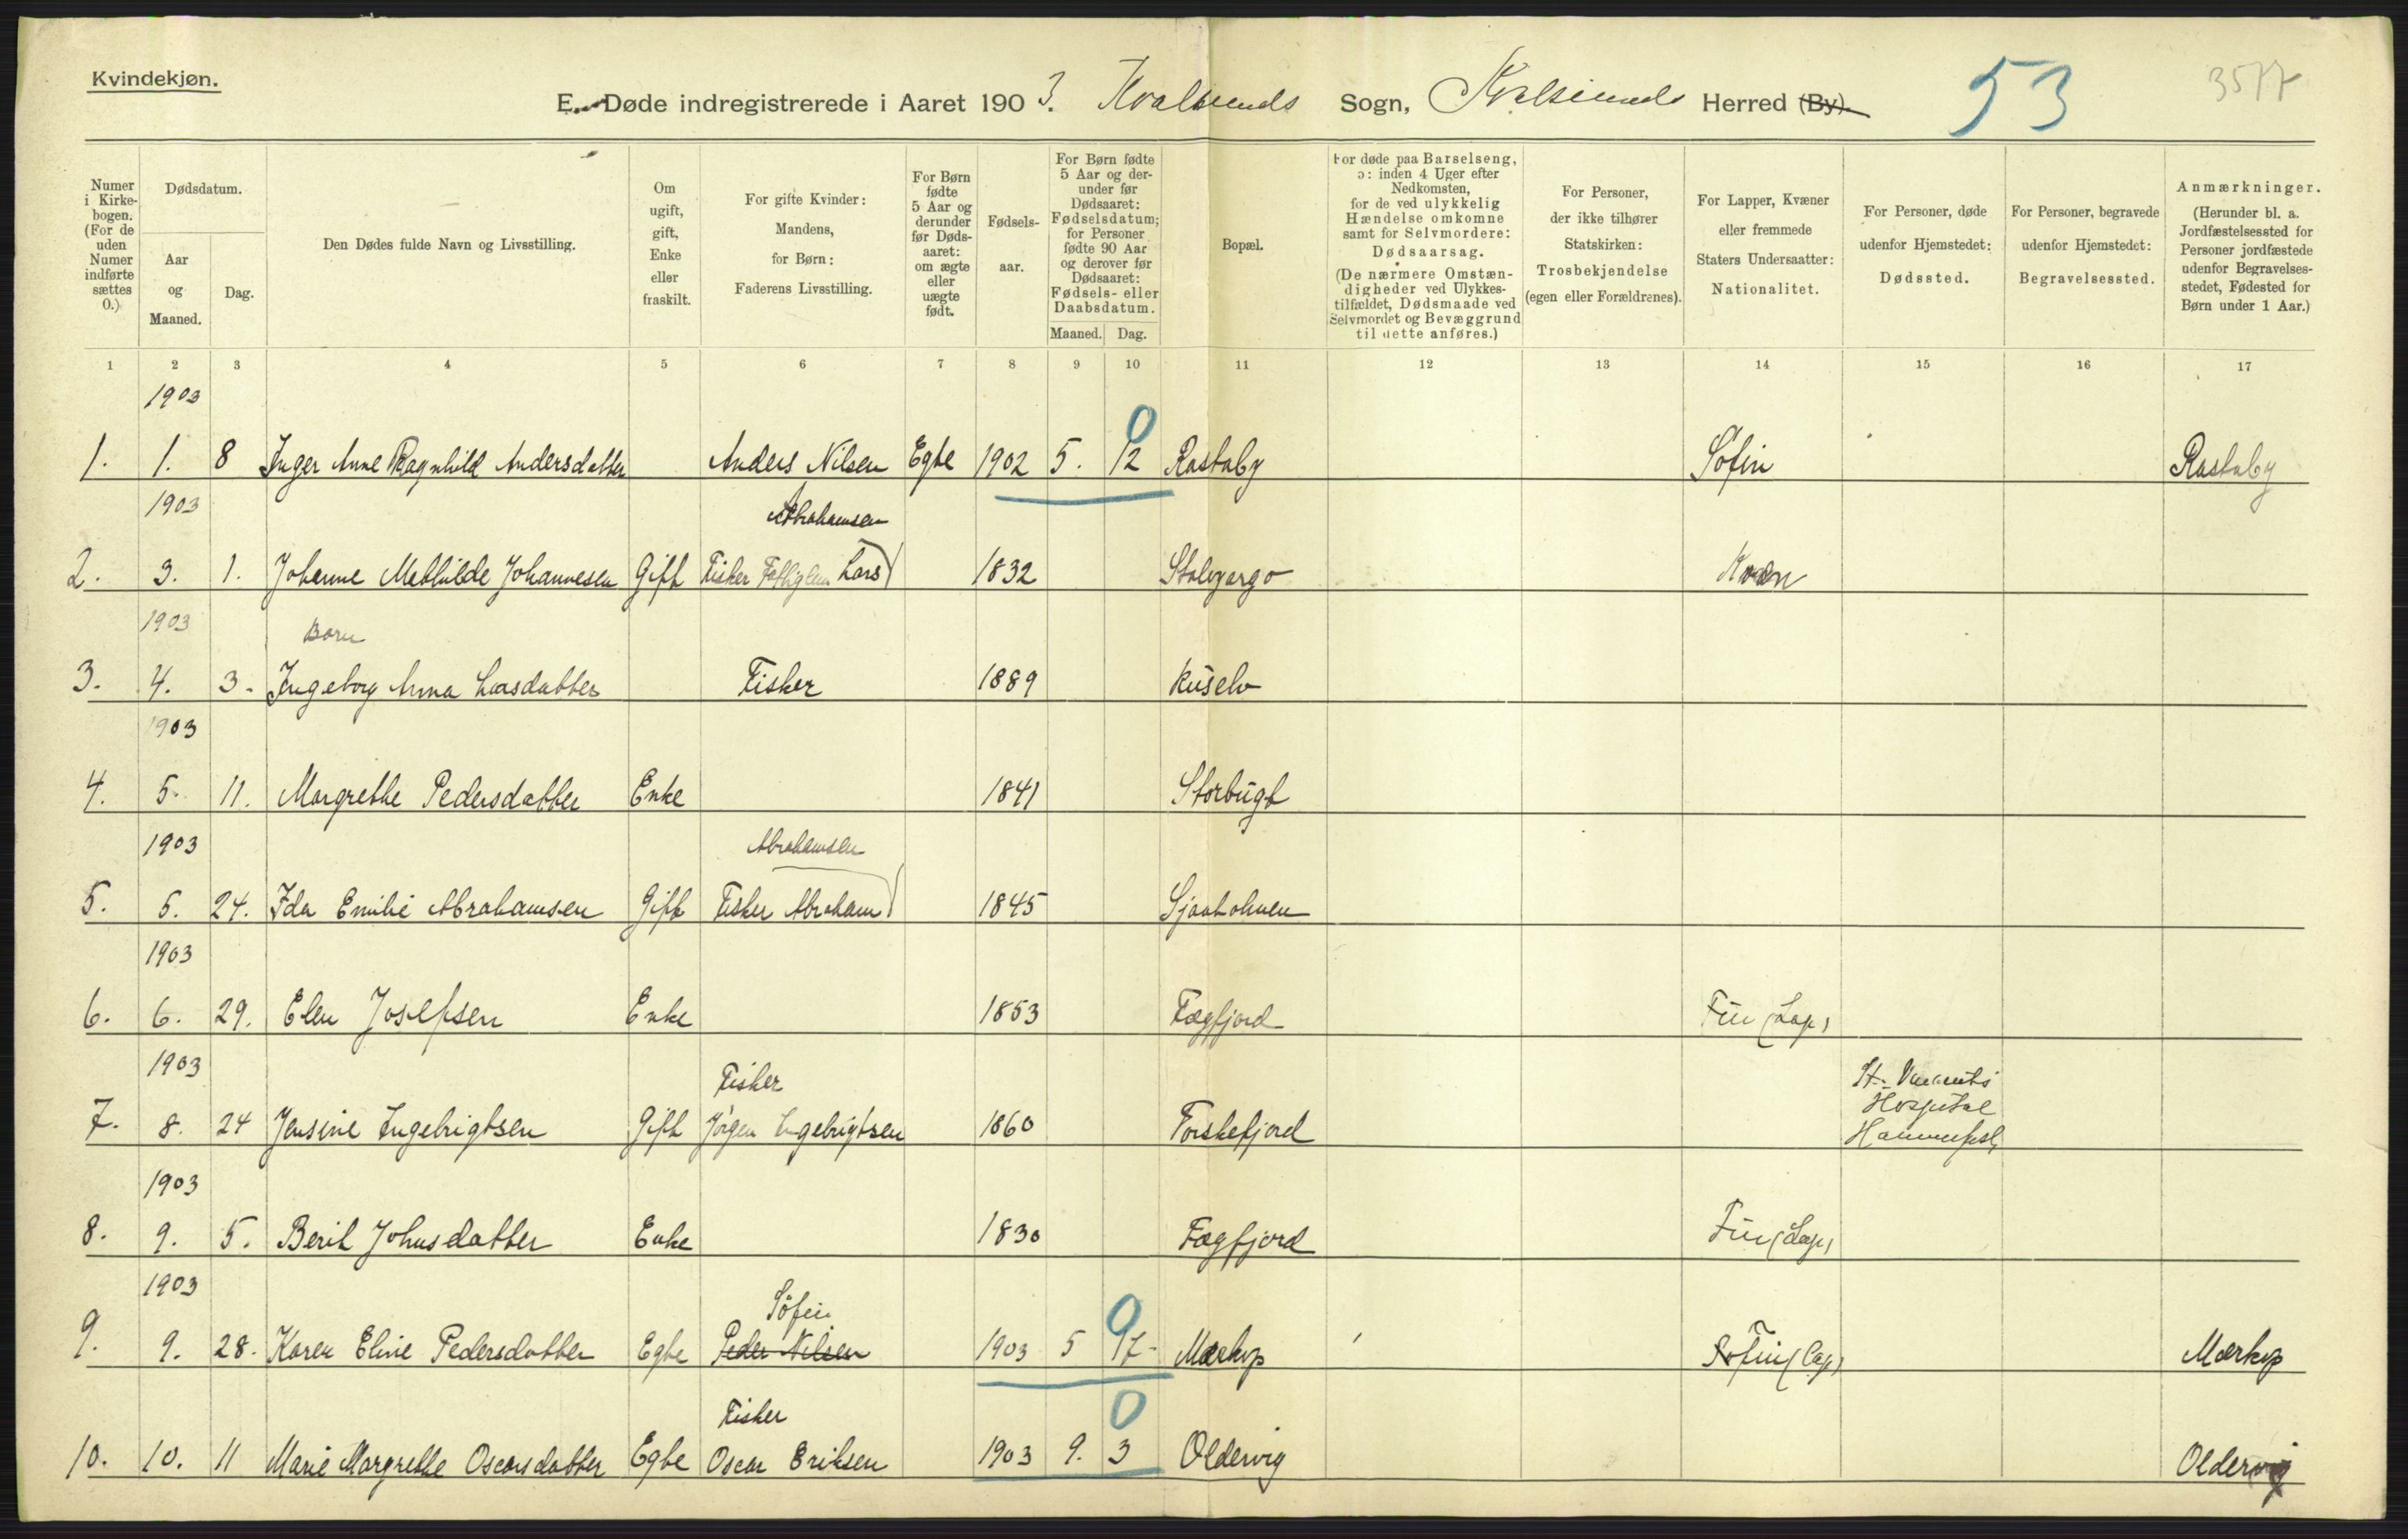 Kvindekjøn.
E. Døde indregistrerede i Aaret 1903. Kvalsunds Sogn, Kvalsunds Herred (By). 53 3577
Numer i Kirkebogen. (For de uden Numer indførte sættes 0.)
Dødsdatum.
Aar og Maaned.
Dag.
Den Dødes fulde Navn og Livsstilling.
Om ugift, gift, Enke eller fraskilt.
For gifte Kvinder: Mandens, for Børn: Faderens Livsstilling.
For Børn fødte 5 Aar og derunder før Dødsaaret: om ægte eller uægte født.
Fødselsaar.
For Børn fødte 5 Aar og derunder før Dødsaaret: Fødselsdatum; for Personer fødte 90 Aar og derover før Dødsaaret: Fødsels- eller Daabsdatum.
Maaned. Dag.
Bopæl.
For døde paa Barselseng, ɔ: inden 4 Uger efter Nedkomsten, for de ved ulykkelig Hændelse omkomne samt for Selvmordere: Dødsaarsag. (De nærmere Omstændigheder ved Ulykkestilfældet, Dødsmaade ved Selvmordet og Bevæggrund til dette anføres.)
For Personer, der ikke tilhører Statskirken: Trosbekjendelse (egen eller Forældrenes).
For Lapper, Kvæner eller fremmede Staters Undersaatter: Nationalitet.
For Personer, døde udenfor Hjemstedet: Dødssted.
For Personer, begravede udenfor Hjemstedet: Begravelsessted.
Anmærkninger. (Herunder bl. a. Jordfæstelsessted for Personer jordfæstede udenfor Begravelsesstedet, Fødested for Børn under 1 Aar.)
1 2 3 4 5 6 7 8 9 10 11 12 13 14 15 16 17
1903 0
1. 1. 8 Inger Anne Ragnhild Andersdatter Anders Nilsen Egte 1902 5. 12 Rastaby Söfin Rastaby
1903 Abrahamsen
2. 3. 1. Johanne Mathilde Johannesen Gift Fisker Lars 1832 Kvæn
1903 Barn
3. 4. 3. Ingeborg Anna Larsdatter Fisker 1889 Kuselv
1903
4. 5. 11. Margrethe Pedersdatter Enke 1841 Storbugt
1903 Abrahamsen
5. 5. 24. Ida Emilie Abrahamsen Gift Fisker Abraham 1845 Sjaaholmen
1903
6. 6. 29. Elen Josefsen Enke 1853 Fægfjord Fin (Lap)
1903 Fisker St. Vincents Hospital
7. 8. 24 Jensine Ingebrigtsen Gift Jörgen Ingebrigtsen 1860 Forskefjord Hammerfest
1903
8. 9. 5. Berit Johnsdatter Enke 1830 Fægfjord Fin (Lap)
1903 Söfin 0
9. 9. 28. Karen Eline Pedersdatter Egte Peder Nilsen 1903 5 17. Mærkop Söfin (Lap) Mærkop
Fisker 0
10. 10. 11 Marie Margrethe Oscarsdatter Egte Oscar Eriksen 1903 9. 3 Oldervig Oldervig